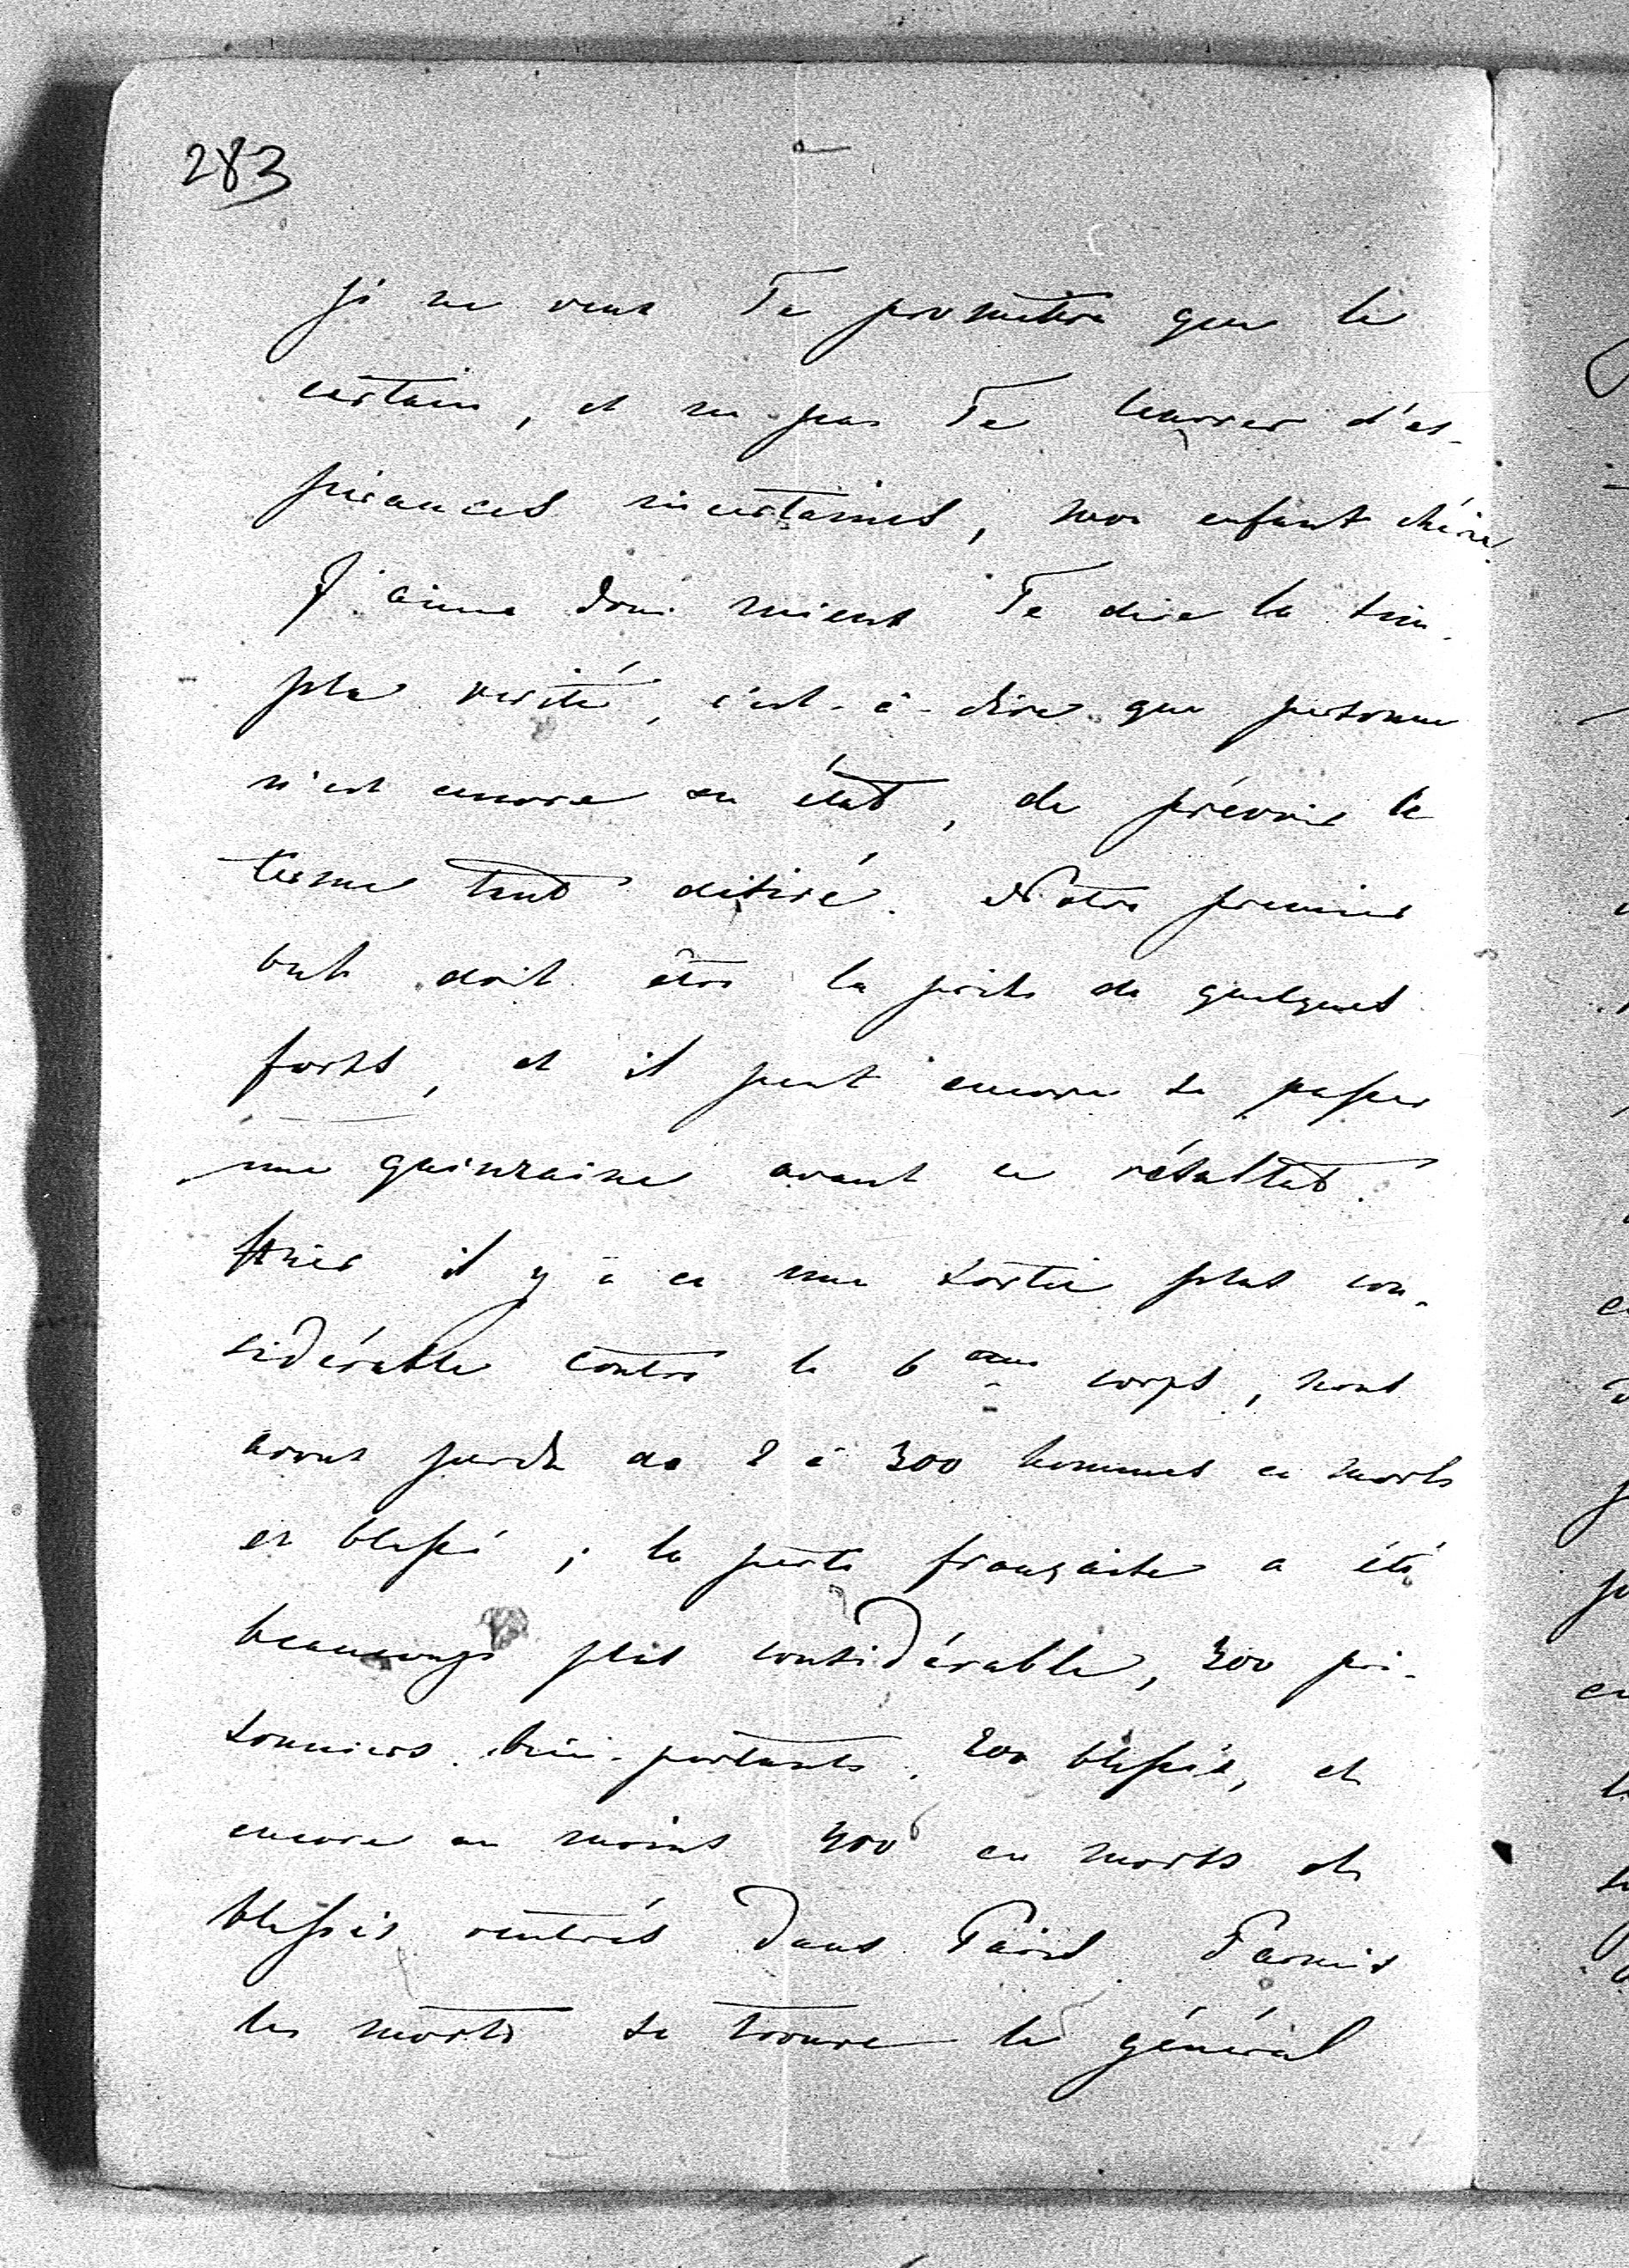 283
je ne veux Te promettre que le
certain, et ne pas Te leurrer d'es-
pérances incertaines, mon enfant chérie
J'aime donc mieux Te dire la sim-
ple vérité, c'est-à-dire que personne
n'est encore en état, de prévoir le
terme tant désiré. Notre premier
but doit être la prise de quelques
forts, et il peut encore se passer
une quinzaine avant ce résultat.
Hier il y a eu une sortie plus con-
sidérable contre le 6ème corps, nous
avons perdu de 2 à 300 hommes en morts
et blessé; la perte française a été
beaucoup plus considérable, 300 pri-
sonniers bien-portants, 200 blessés, et
encore au moins 400 en morts et
blessés rentrés dans Paris. Parmis
les morts se trouve le général